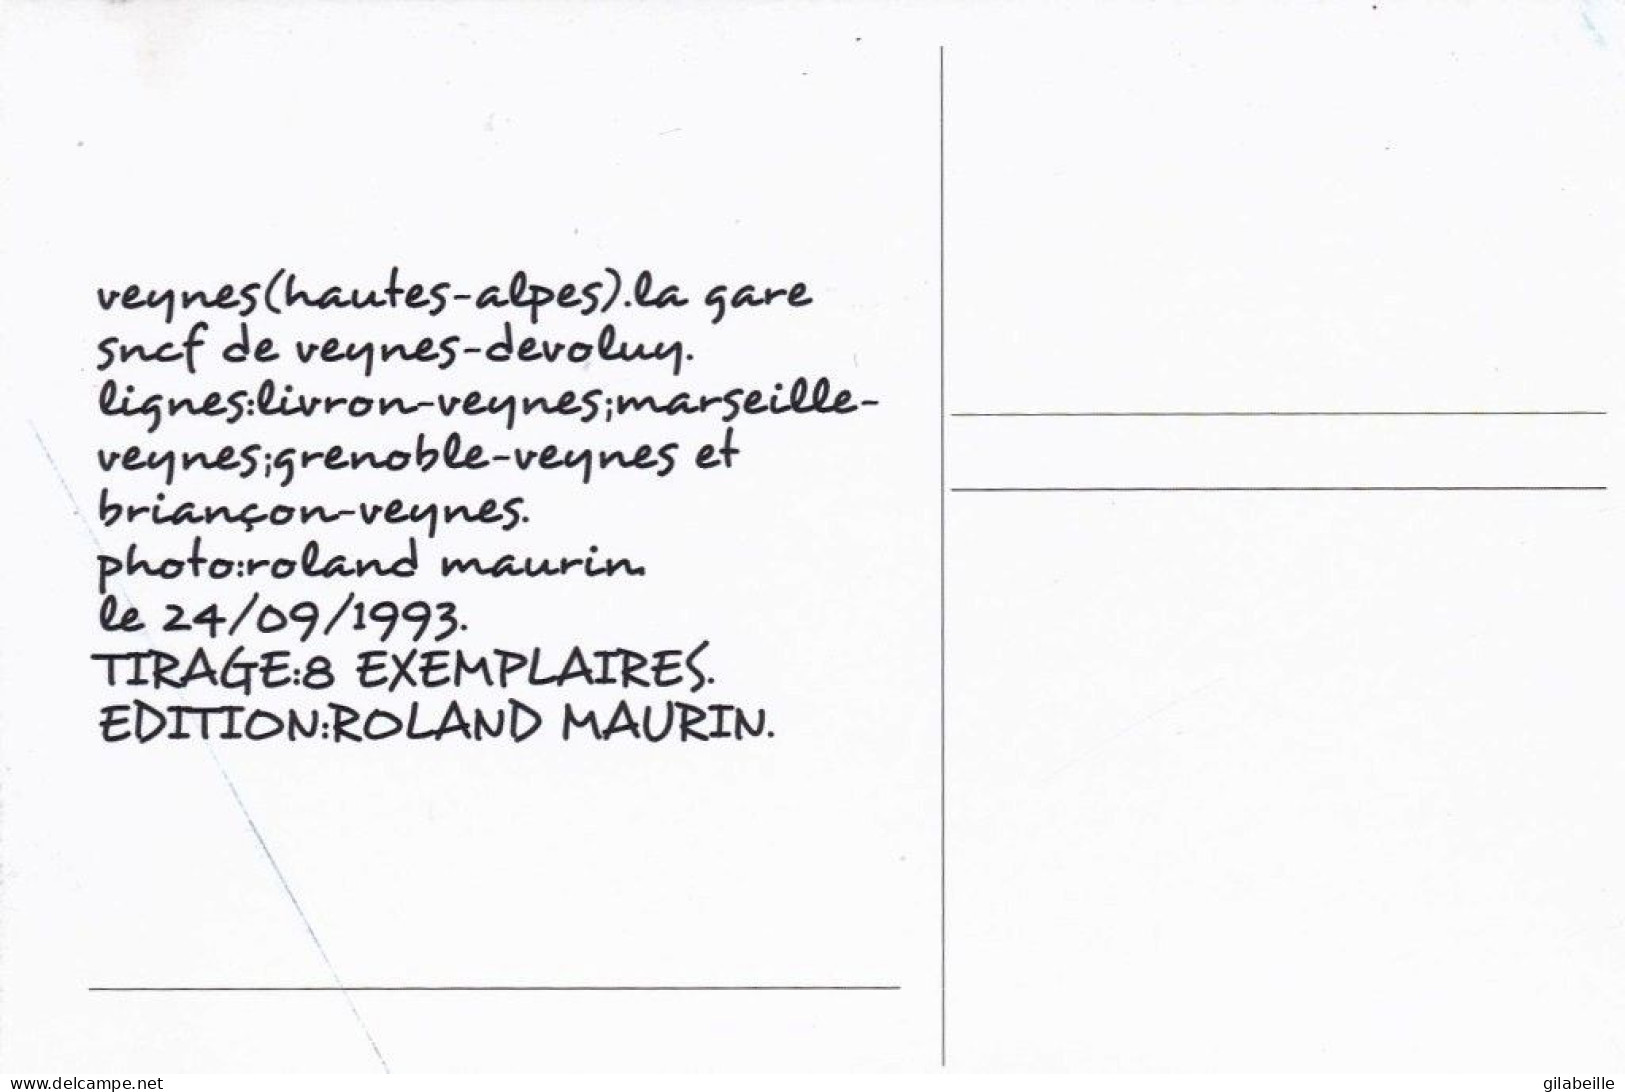 veynes(hautes-alpes).la gare
sncf de veynes-devoluy.
lignes:livron-veynes;marseille-
veynes;grenoble-veynes et
briançon-veynes.
photo:roland maurin.
le 24/09/1993.
TIRAGE:8 EXEMPLAIRES.
EDITION:ROLAND MAURIN.
www.delcampe.net
gilabeille